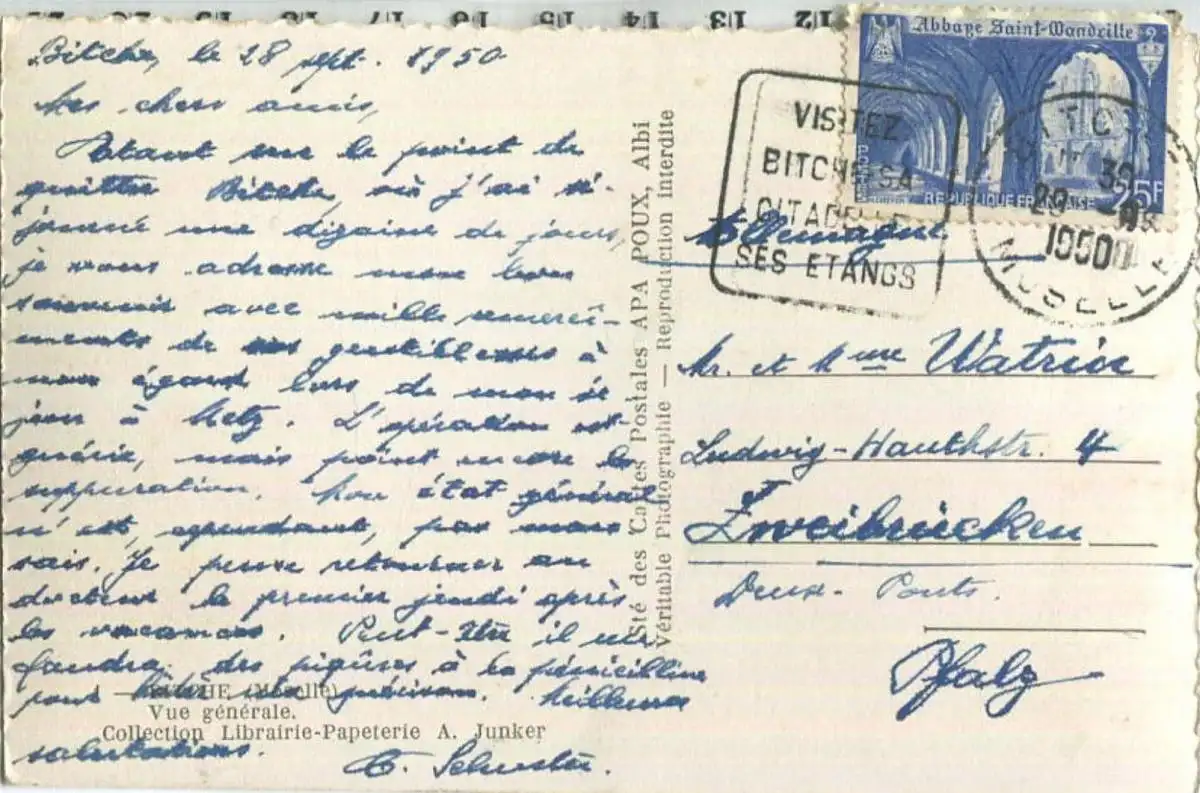 Bitche, le 28 sept. 1950
Mes chers amis,
Etant sur le point de
quitter Bitche, où j'ai sé-
journé une dizaine de jours,
je vous adresse mon bon
souvenir avec mille remerci-
ments de vos gentillesses à
mon égard lors de mon sé
jour à Metz. L'opération est
guérie, mais point encore la
suppuration. Mon état général
n'est, cependant, pas mau
vais. Je pense retourner au
docteur le premier jeudi après
les vacances. Peut-être il me
faudra des piqûres à la pénicilline
pour hâter la guérison. Meilleures
salutations.
C. Schuster.
(Moselle)
Vue générale.
Collection Librairie-Papeterie A. Junker
Sté des Cartes Postales APA POUX, Albi
Véritable Photographie — Reproduction interdite
Abbaye Saint-Wandrille
POSTES
REPUBLIQUE FRANÇAISE
25F
VISITEZ
BITCHE SA
CITADELLE
SES ETANGS
BITCHE
29
1950
MOSELLE
Allemagne
Mr. et Mme Watrin
Ludwig-Hauthstr. 4
Zweibrücken
Deux-Ponts.
Pfalz
12 13 14 15 16 17 18 19 20